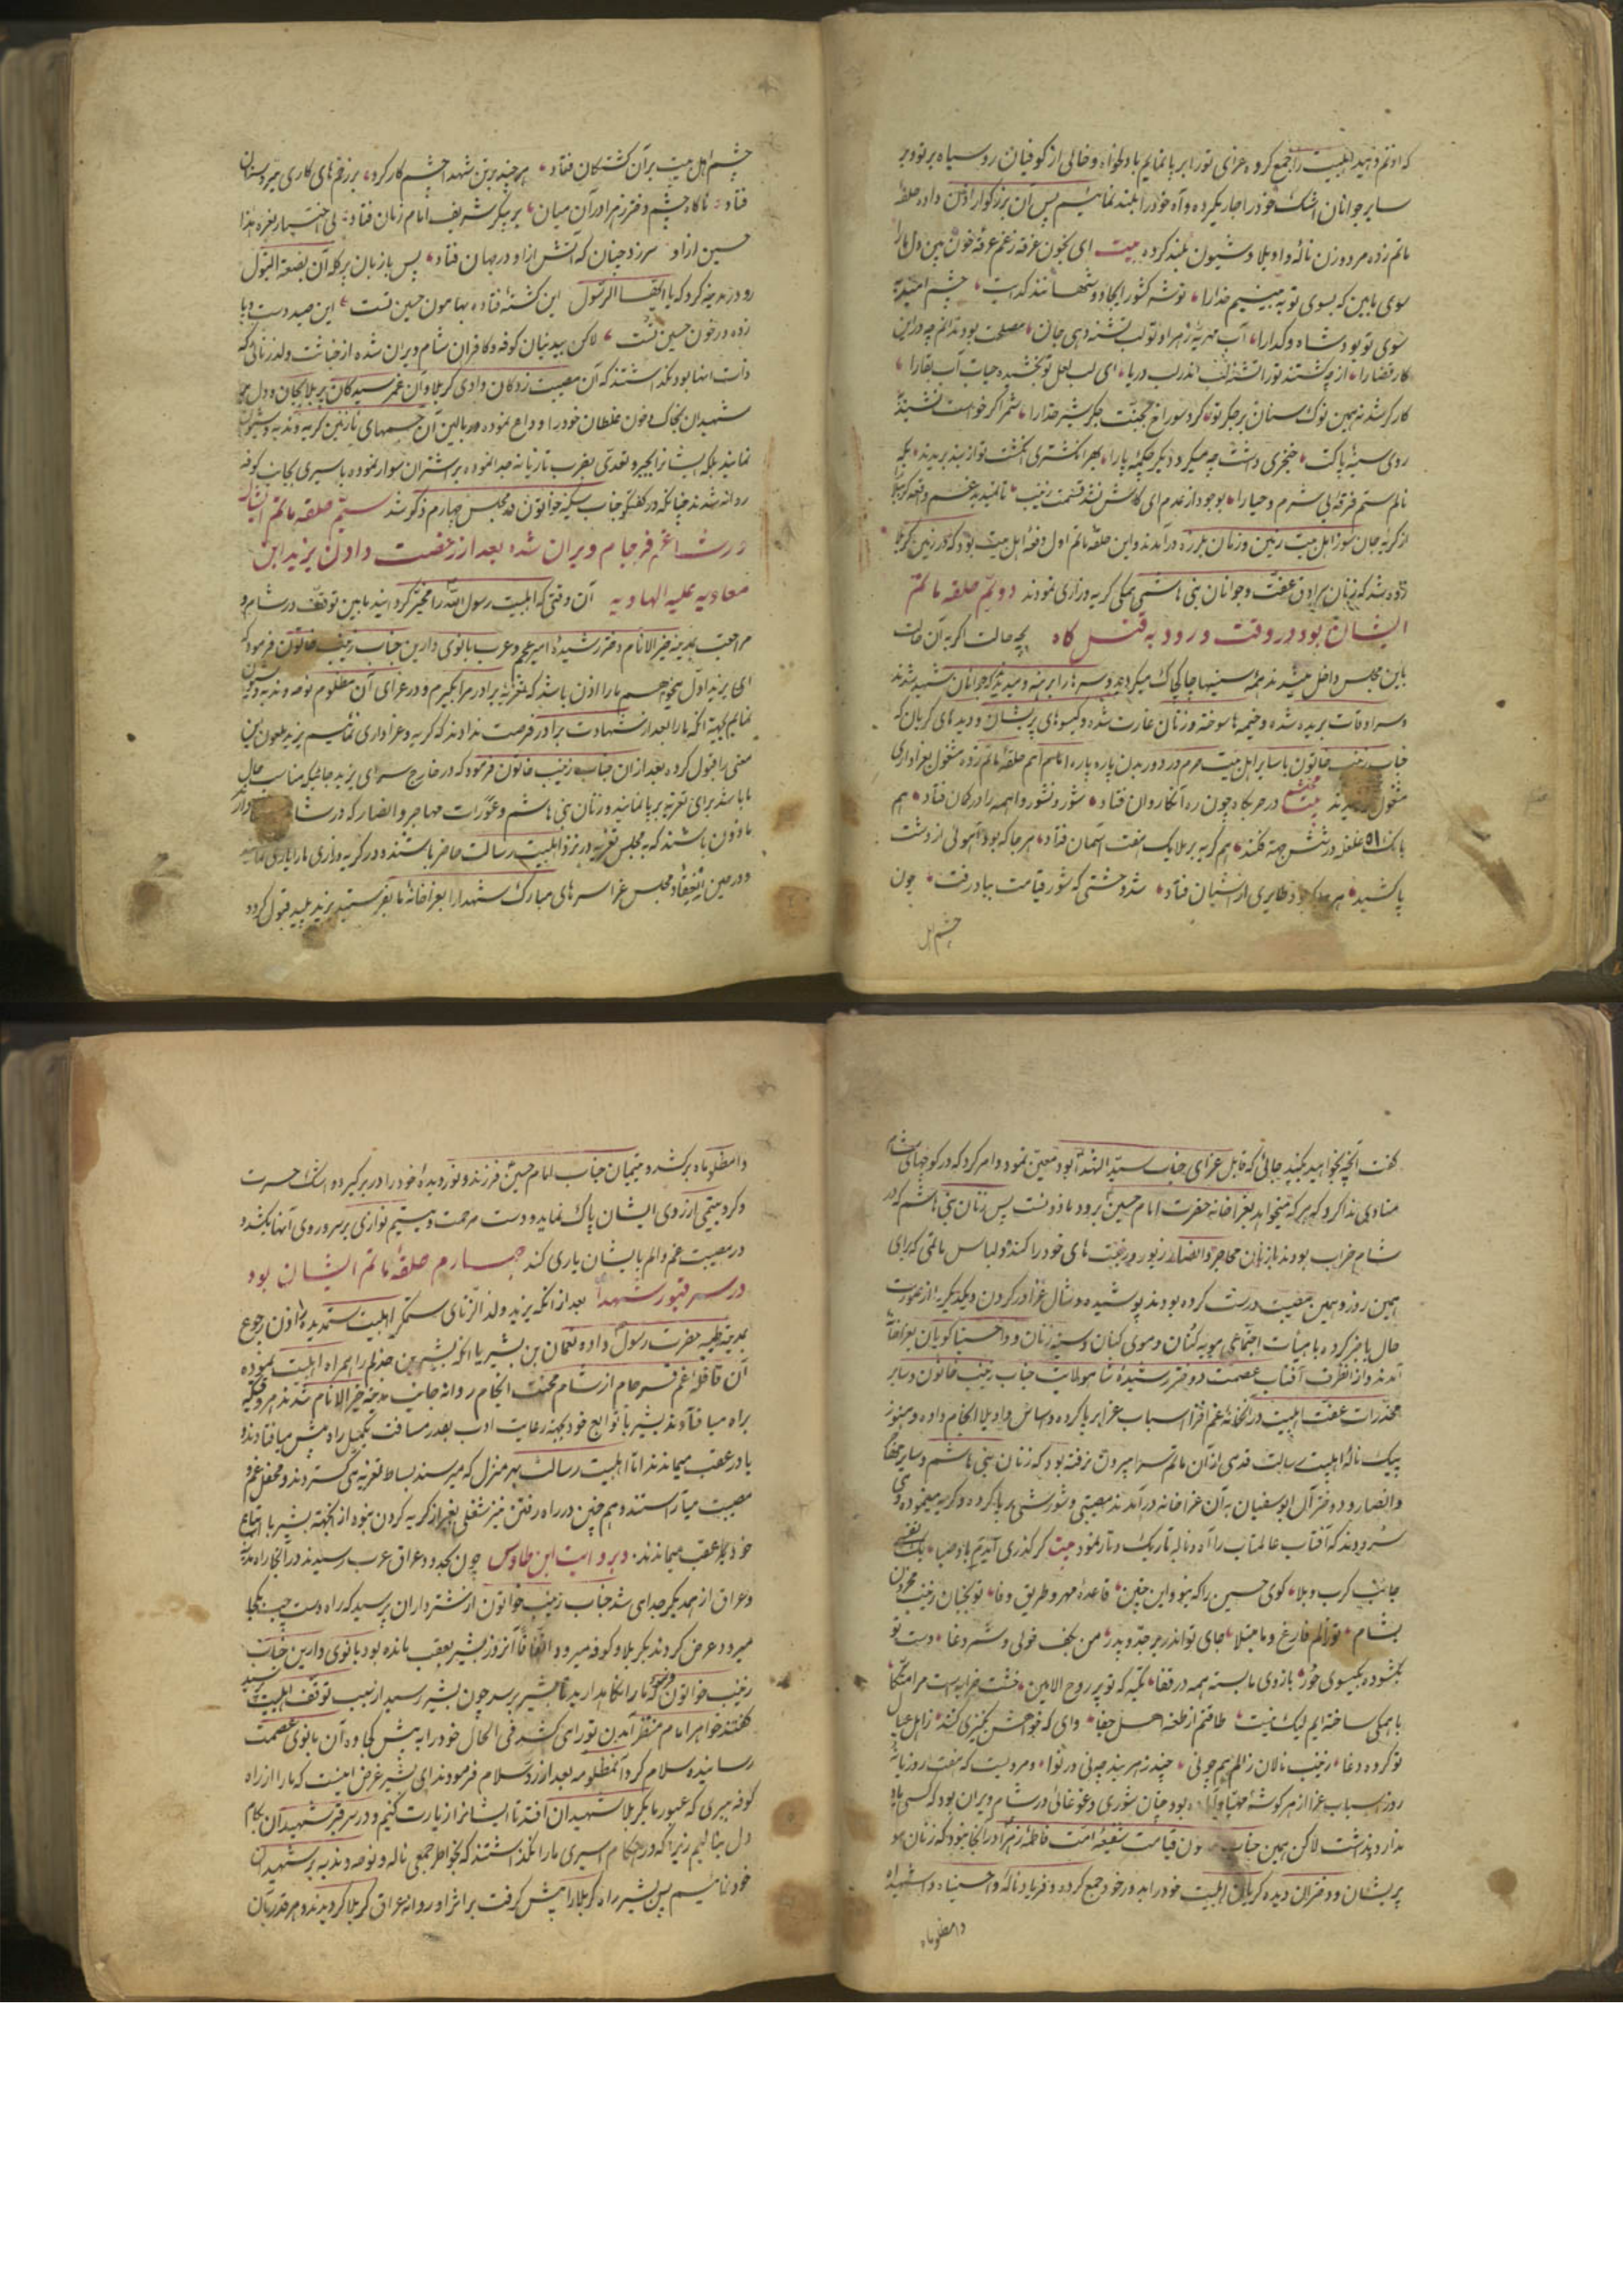 که اذنم دهید اهلبیت را جمع کرده عزای تو را برپا نمایم بادلخواه و خالی از کوفیان روسیاه بر تو و بر
سایر جوانان اشک خود را جاری کرده و آه خود را بلند نمائیم پس آن بزرگوار اذن داده حلقهٔ
ماتم زده مرد و زن ناله واویلا و شیون بلند کرده بیت ای بخون غرقه زغم غرقهٔ خون بین دل ما را
سوی ما بین که بسوی تو به بینیم خدا را
سوی تو بود شاه و گدا را آب مهریهٔ زهرا و تو لب تشنه دهی جان مصلحت بود ندانم چه در این
کار قضا را از چه کشتند تو را تشنه لب اندر لب دریا ای لب لعل تو بخشیده حیات آب بقا را
کارگر شد نه همین نوک سنان بر جگر تو کرد سوراخ جگر شیر خدا را شمر اگر خواست نشیند
روی سینهٔ پاکت خنجری داشت چه میکرد دیگر چکمهٔ پا را بهر انگشتری انگشت تو از بند بریدند
نالم ستم فرقهٔ بی شرم و حیا را بوجود از عدم ای کاش نشد قسمت زینب تا نمیدید غم واقعه کربلا
از گریه جان سوز اهل بیت زمین و زمان بلرزه درآمدند و این حلقه ماتم اول دفعهٔ اهل بیت بود که در زمین کربلا
زده شد که زنان سرادق عفت و جوانان بنی هاشمی بکی گریه و زاری نمودند دویّم حلقه ماتم
ایشان بود در وقت ورود به قتل کاه بچه حالت که به آن حالت
باین مجلس داخل میشدند همه سینها چاک چاک میکردند و سرها را برهنه و میدیدند که جوانان شهید شدند
و سرادقات بریده شده و خیمه ها سوخته و زنان غارت شده و گیسوهای پریشان و دیدهای گریان که
جناب زینب خاتون با سایر اهل بیت حرم در دور بدن پاره پاره امام اُمم حلقهٔ ماتم زده مشغول بعزاداری
مشغول گردیدند محتشم بیت در حربگاه چون ره آن کاروان فتاد شور و نشور واهمه را در گمان فتاد هم
بانک غلغله در شش جهة فکند هم گریه بر ملایک هفت آسمان فتاد هر جا که بود آهوئی از دشت
پا کشید هر جا که بود طایری از آشیان فتاد شد وحشتی که شور قیامت بباد رفت چون
چشم اهل
چشم اهل بیت بر آن کشتگان فتاد هر چند بر تن شهدا چشم کار کرد بر زخم های کاری تیر و سنان
فتاد ناگاه چشم دختر زهرا در آن میان بر پیکر شریف امام زمان فتاد بی اختیار نعره هذا
حسین از او سر زد چنان که آتش از او در جهان فتاد پس با زبان پر گله آن بضعة البتول
رو در مدینه کرد که یا ایها الرسول این کشتهٔ فتاده بهامون حسین تست این صید دست و پا
زده در خون حسین تست لاکن بیدینان کوفه و کافران شام ویران شده از خباثت ولد زنائی که
ذات اینها بود نگذاشتند که آن مصیبت زدگان وادی کربلا و آن غمرسیدگان پر بلا بجان و دل بر
شهیدان بخاک و خون غلطان خود را وداع نموده در بالین آن جسمهای نازنین گریه و ندبه و شیون
نمایند بلکه ایشانرا بجبر و تعدّی بضرب تازیانه جدا نموده بر شتران سوار نموده باسیری بجانب کوفه
روانه شدند چنانکه در گفتگو جناب سکینه خواتون در مجلس چهارم ذکر شد سیّم حلقه ماتم ایشان
در شام غم فرجام ویران شده بعد از رخصت دادن یزید ابن
معاویه علیه الهاویه آن وقتی که اهلبیت رسول الله را مخیّر گردانید مابین توقف در شام و
مراجعت بمدینه خیر الانام دختر رشیدهٔ امیر عجم و عرب بانوی دارین جناب زینب خاتون فرمود که
ای یزید اول میخواهیم ما را اذن باشد که تعزیه برادر مرا بگیرم و در عزای آن مظلوم نوحه و ندبه و شیون
نمایم بجهة آنکه ما را بعد از شهادت برادر فرصت ندادند که گریه و عزاداری نمائیم یزید ملعون این
معنی را قبول کرده بعد از آن جناب زینب خاتون فرمود که در خارج سرای یزید جائیکه مناسب حال
ما باشد برای تعزیه برپا نمایند و زنان بنی هاشم و عورات مهاجر و انصار که در شام
ماذون باشند که به مجلس تعزیه در نزد اهلبیت رسالت حاضر باشند و در گریه و زاری ما را یاری نمایند
و در حین انعقاد مجلس عزا سرهای مبارک شهدا را بعزاخانهٔ ما بفرستید یزید پلید قبول کرده
گفت آنچه بخواهید بکنید جائی که قابل عزای جناب سید الشهدا بود معین نمود و امر کرد که در کوچهای شام
منادی ندا کرد که هر که میخواهد بعزاخانه حضرت امام حسین برود ماذونست پس زنان بنی هاشم که در
شام خراب بودند با زنان مهاجر و انصار زیور و زینت های خود را کنده و لباس ماتمی که برای
همین روز و همین مصیبت درست کرده بودند پوشیده و شال عزا در گردن و یکدیگر را از صورت
حال با خبر کرده با هیأت اجتماعی مویه کنان و موی کنان و سینه زنان و واحسینا گویان بعزاخانه
آمدند و از آنطرف آفتاب عصمت و دختر رشیدهٔ شاه ولایت جناب زینب خاتون و سایر
مخدرات عفت اهلبیت در آنخانهٔ غم افزا اسباب عزا برپا کرده و اساس واویلا انجام داده و هنوز
پیک نالهٔ اهلبیت رسالت قدمی از آن ماتم سرا بیرون نرفته بود که زنان بنی هاشم و سایر مهاجر
و انصار و دختر آل ابوسفیان به آن عزاخانه درآمدند مصیبتی و شورشی برپا کرده و گریه مینمودند و می
سرودند که آفتاب عالمتاب را آه و ناله تاریک و تار نمود بیت گر گذری آیدیَم باد صبا یک نفسی
جانب کرب و بلا کوی حسین را که بنود این چنین قاعدهٔ مهر و طریق وفا تو بجنان زینب محزون
بشام تو زالم فارغ و ما مبتلا جای تو اندر بر جدّ و پدر من بکف خولی و شمر دغا دست تو
بگشوده بگیسوی حور بازوی ما بسته همه در قفا تکیه که تو پر روح الامین خشت خرابه ست مرا متکا
با همگی ساخته ایم لیک نیست طاقتم از طعنه اهل جفا وای که خواهش بکنیزی کنند زاهل عیال
تو گروه دغا زینب نالان زالم همچو نی چند زهر بند چه نی در نوا و مرویست که هفت روز بنای
روز اسباب عزا از هر گوشهٔ مهیا بود چنان شوری و غوغائی در شام ویران بود که کسی یاد
ندارد نداشت لاکن همین جناب چون قیامت شفیعهٔ امت فاطمهٔ زهرا در آنجا بود که زنان مو
پریشان و دختران دیده گریان اهلبیت خود را بدور خود جمع کرده و فریاد و نالهٔ واحسیناه و واشهیداه
وامظلوماه
وامظلوماه برکشد و یتیمان جناب امام حسین فرزند و نوردیدهٔ خود را در بر گیرد و اشک حسرت
و گرد یتیمی از روی ایشان پاک نماید و دست مرحمت و یتیم نوازی بر سر و روی آنها بکشد
در مصیبت غم و الم بایشان یاری کند چهارم حلقهٔ ماتم ایشان بود
در سر قبور شهدا بعد از آنکه یزید ولد الزنای ستمگر اهلبیت ستمدیده را اذن رجوع
بمدینه طیبه حضرت رسول داده و نعمان بن بشیر یا آنکه بشیر بن جذلم را همراه اهلبیت نموده
آن قافلهٔ غم فرجام از شام محنت انجام روانه جانب مدینه خیر الانام شدند هر وقتیکه
براه میافتادند بشیر با توابع خود بجهة رعایت ادب بقدر مسافت یکمیل راه پیش میافتادند و
یا در عقب میماندند اما اهلبیت رسالت بهر منزل که میرسند بساط تعزیه می گستردند و محفل غم و
مصیبت میآراستند و هم چنین در راه رفتن نیز شغلی بغیر از گریه کردن نبود از آنجهة بشیر با اتباع
خود بعقب میماندند و بروایت ابن طاوس چون بحدود عراق عرب رسیدند در آنجا راه مدینه
و عراق از همدیگر جدا می شد جناب زینب خواتون از شترداران پرسید که راه دست چپ بکجا
میرود عرض کردند بکربلا و کوفه میرود اتفاقاً آنروز بشیر بعقب مانده بود بانوی دارین جناب
زینب خواتون فرمود که ما را نگاهدارید تا بشیر برسد چون بشیر رسید از سبب توقف اهلبیت پرسید
گفتند خواهر امام منتظر آمدن تو را می کشد فی الحال خود را به پیش کجاوه آن بانوی عصمت
رسانیده سلام کرد آنمظلومه بعد از رد سلام فرمودند ای بشیر غرض اینست که ما را از راه
کوفه ببری که عبور ما بکربلا شهیدان افتد تا ایشانرا زیارت کنیم و در سر قبر شهیدان بکام
دل بنالیم زیرا که در هنگام اسیری ما را نگذاشتند که بخواطر جمعی ناله و نوحه و ندبه بر شهیدان
خود نمائیم پس بشیر راه کربلا را پیش گرفت بر اثر او روانه عراق کربلا گردیدند و هر قدر زنان